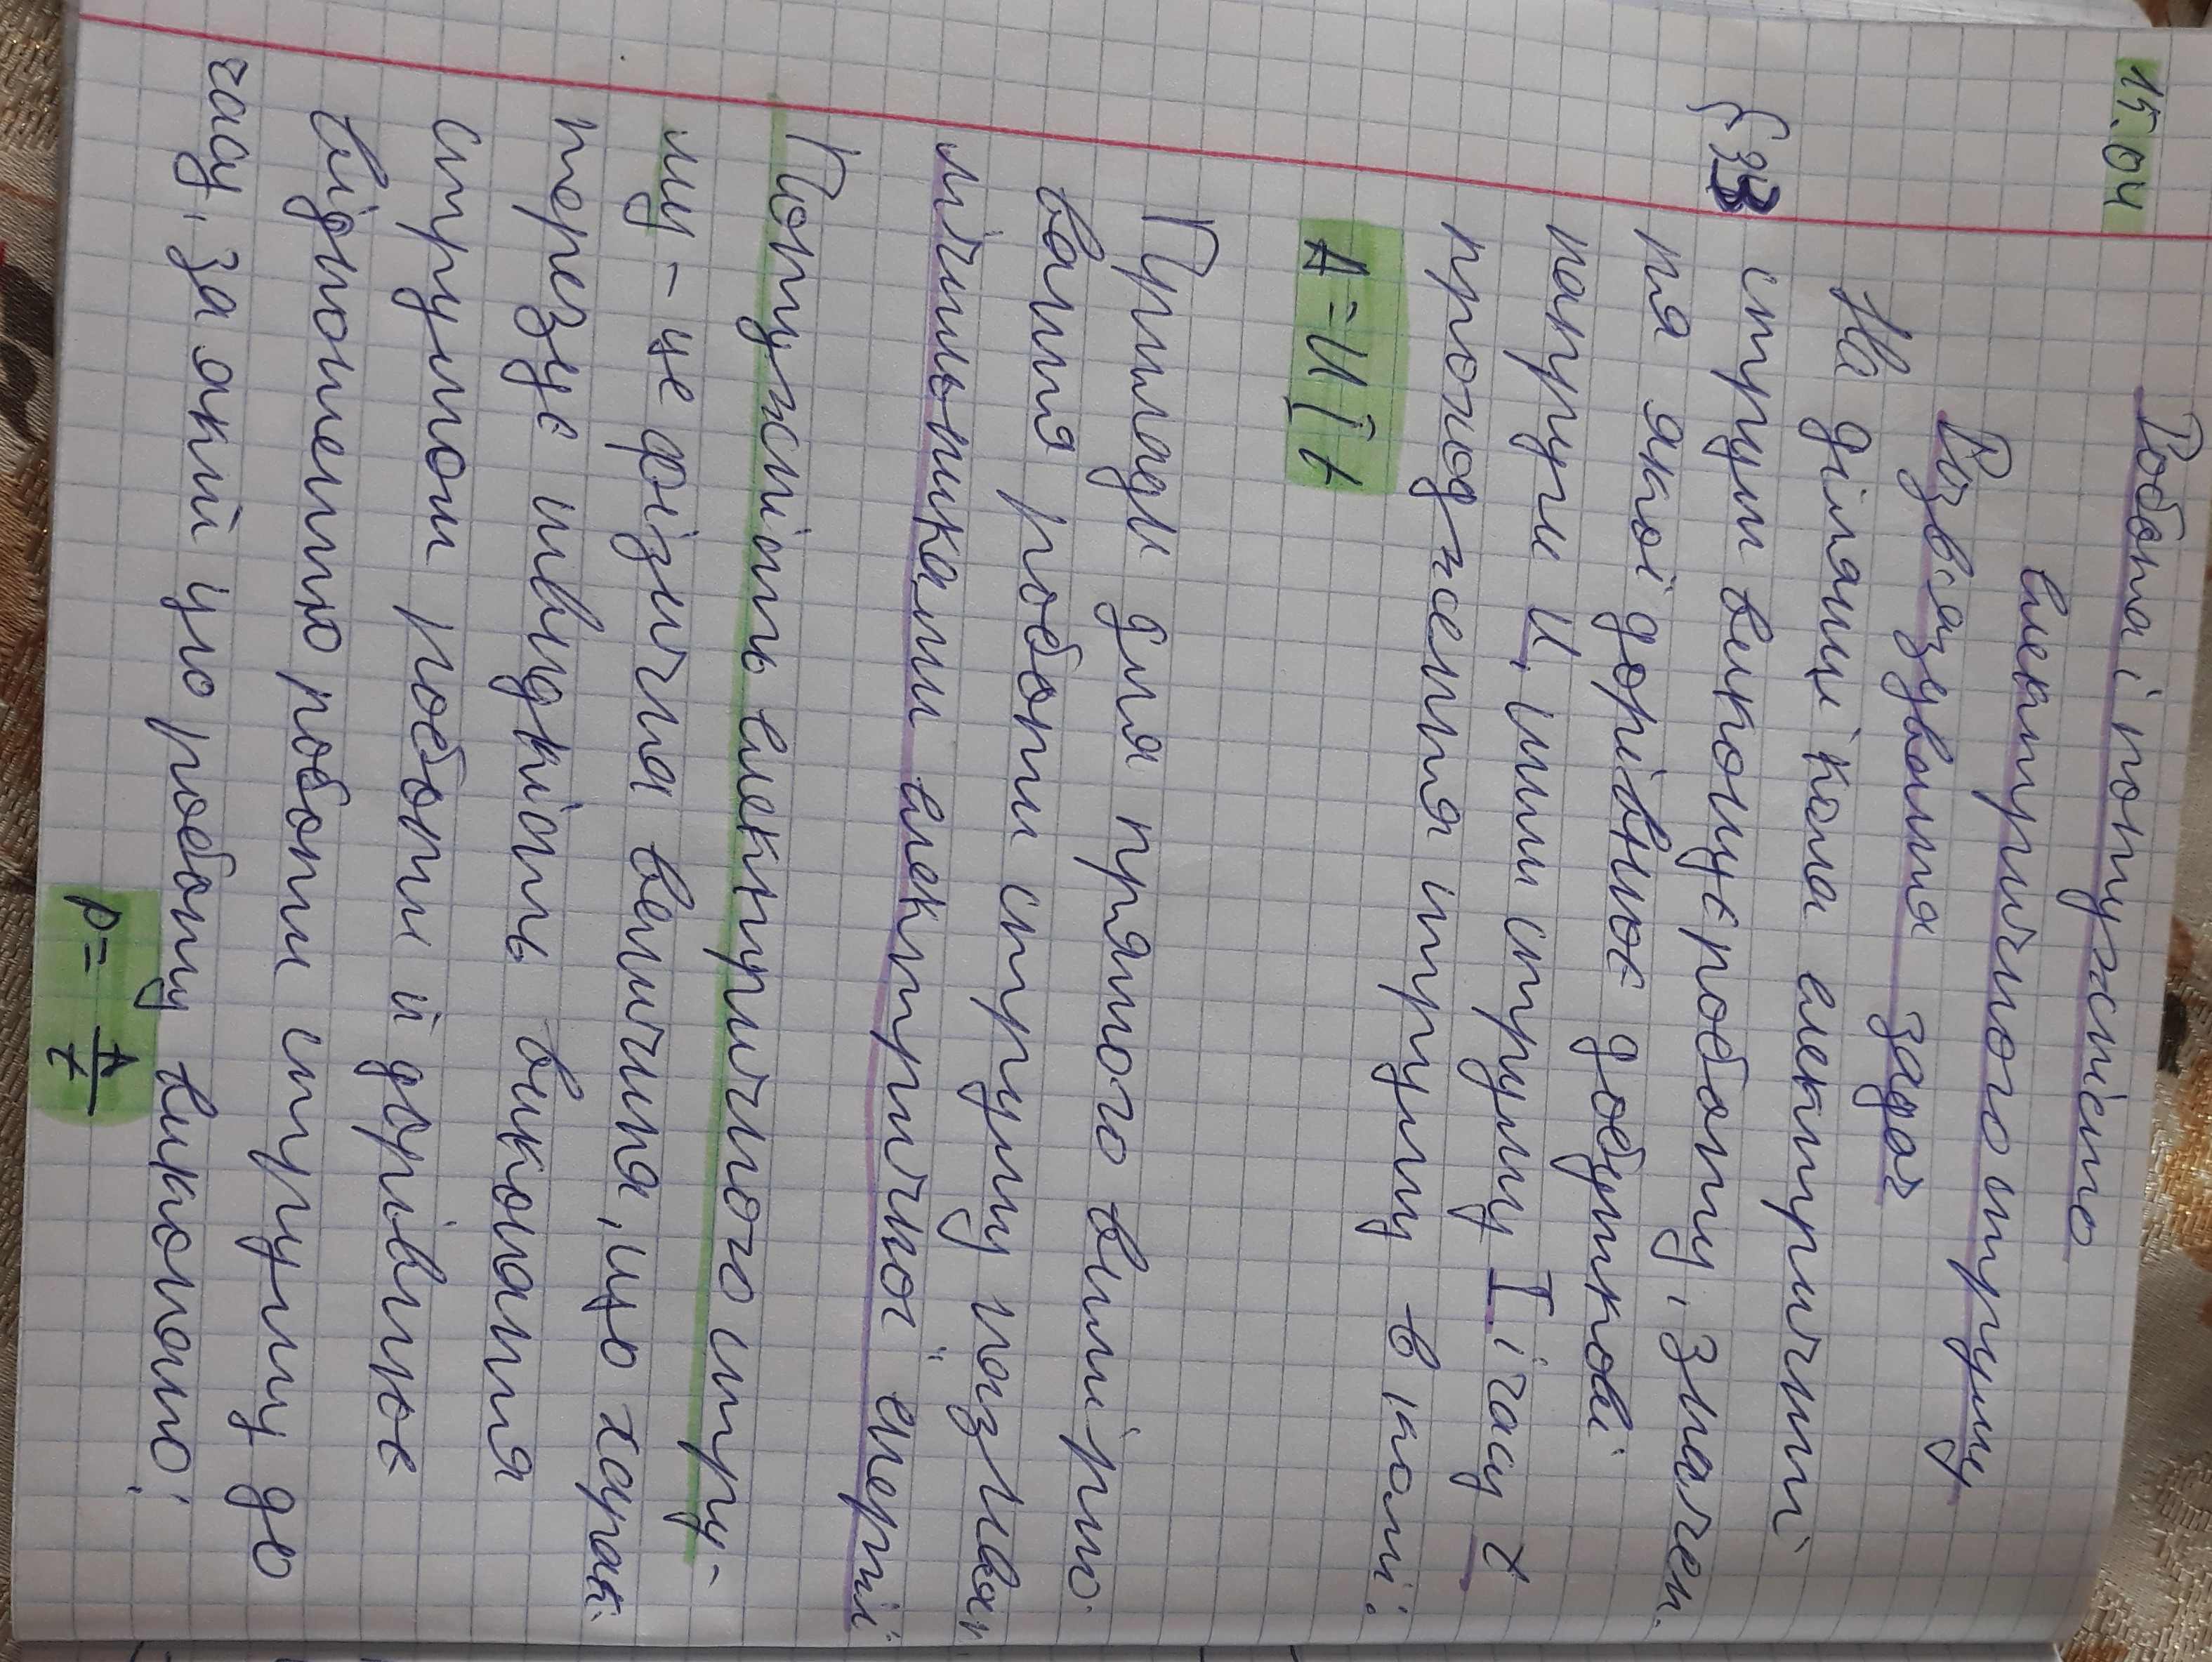 15.04
Робота і потужність
електричного струму
Розв'язування задач
На ділянці кола електричний
§33 струм виконує роботу, значен.
ня якої дорівнює добуткові
напруги U, сили струму I і часу t
проходження струму в колі:
A=UIt
Прилади для прямого вимірю.
вання роботи струму назива.
лічильниками електричної енергії
Потужність електричного стру-
му - це фізична величина, що харак.
теризує швидкість виконання
струмом роботи й дорівнює
відношенню роботи струму до
часу, за який цю роботу виконано:
P= A/t